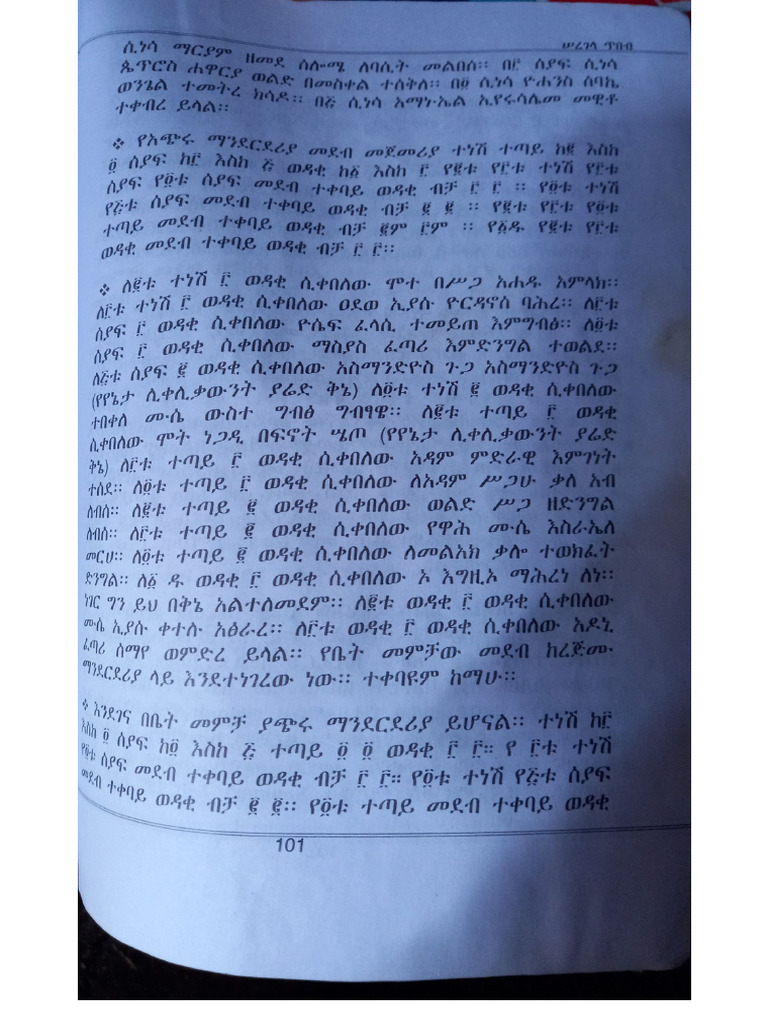 ሠረገላ ጥበብ
ሲነሳ ማርያም ዘመደ ሰሎሜ ለባሲት መልበስ። በ፫ ሰያፍ ሲነሳ
ጴጥሮስ ሐዋርያ ወልድ በመስቀል ተሰቅለ። በ፬ ሲነሳ ዮሐንስ ሰባኬ
ወንጌል ተመትረ ክሳዶ። በ፭ ሲነሳ አማኑኤል ኢየሩሳሌም መዊቶ
ተቀብረ ይላል።
❖ የአጭሩ ማንደርደሪያ መደብ መጀመሪያ ተነሽ ተጣይ ከ፪ እስከ
፬ ሰያፍ ከ፫ እስከ ፭ ወዳቂ ከ፩ እስከ ፫ የ፪ቱ የ፫ቱ ተነሽ የ፫ቱ
ሰያፍ የ፬ቱ ሰያፍ መደብ ተቀባይ ወዳቂ ብቻ ፫ ፫ ። የ፬ቱ ተነሽ
የ፭ቱ ሰያፍ መደብ ተቀባይ ወዳቂ ብቻ ፪ ፪ ። የ፪ቱ የ፫ቱ የ፬ቱ
ተጣይ መደብ ተቀባይ ወዳቂ ብቻ ፪ም ፫ም ። የ፩ዱ የ፪ቱ የ፫ቱ
ወዳቂ መደብ ተቀባይ ወዳቂ ብቻ ፫ ፫።
❖ ለ፪ቱ ተነሽ ፫ ወዳቂ ሲቀበለው ሞተ በሥጋ አሐዱ አምላክ።
ለ፫ቱ ተነሽ ፫ ወዳቂ ሲቀበለው ዐደወ ኢያሱ ዮርዳኖስ ባሕረ። ለ፫ቱ
ሰያፍ ፫ ወዳቂ ሲቀበለው ዮሴፍ ፈላሲ ተመይጠ እምግብፅ። ለ፬ቱ
ሰያፍ ፫ ወዳቂ ሲቀበለው ማስያስ ፈጣሪ እምድንግል ተወልደ።
ለ፭ቱ ሰያፍ ፪ ወዳቂ ሲቀበለው አስማንድዮስ ጉጋ አስማንድዮስ ጉጋ
(የየኔታ ሊቀሊቃውንት ያሬድ ቅኔ) ለ፬ቱ ተነሽ ፪ ወዳቂ ሲቀበለው
ተበቀለ ሙሴ ውስተ ግብፅ ግብፃዌ። ለ፪ቱ ተጣይ ፫ ወዳቂ
ሲቀበለው ሞት ነጋዲ በፍኖት ሤጦ (የየኔታ ሊቀሊቃውንት ያሬድ
ቅኔ) ለ፫ቱ ተጣይ ፫ ወዳቂ ሲቀበለው አዳም ምድራዊ እምገነት
ተሰደ። ለ፬ቱ ተጣይ ፫ ወዳቂ ሲቀበለው ለአዳም ሥጋሁ ቃለ አብ
ለብሰ። ለ፪ቱ ተጣይ ፪ ወዳቂ ሲቀበለው ወልድ ሥጋ ዘድንግል
ለብሰ። ለ፫ቱ ተጣይ ፪ ወዳቂ ሲቀበለው የዋሕ ሙሴ እስራኤለ
መርሀ። ለ፬ቱ ተጣይ ፪ ወዳቂ ሲቀበለው ለመልአክ ቃሎ ተወክፈት
ድንግል። ለ፩ ዱ ወዳቂ ፫ ወዳቂ ሲቀበለው ኦ እግዚኦ ማሕረነ ለነ።
ነገር ግን ይህ በቅኔ አልተለመደም። ለ፪ቱ ወዳቂ ፫ ወዳቂ ሲቀበለው
ሙሴ ኢያሱ ቀተሉ አፅራረ። ለ፫ቱ ወዳቂ ፫ ወዳቂ ሲቀበለው አዶኒ
ፈጣሪ ሰማየ ወምድረ ይላል። የቤት መምቻው መደብ ከረጅሙ
ማንደርደሪያ ላይ እንደተነገረው ነው። ተቀባዩም ከማሁ።
❖ እንደገና በቤት መምቻ ያጭሩ ማንደርደሪያ ይሆናል። ተነሽ ከ፫
እስከ ፬ ሰያፍ ከ፬ እስከ ፭ ተጣይ ፬ ፬ ወዳቂ ፫ ፫። የ ፫ቱ ተነሽ
የ፬ቱ ሰያፍ መደብ ተቀባይ ወዳቂ ብቻ ፫ ፫። የ፬ቱ ተነሽ የ፭ቱ ሰያፍ
መደብ ተቀባይ ወዳቂ ብቻ ፪ ፪። የ፬ቱ ተጣይ መደብ ተቀባይ ወዳቂ
101